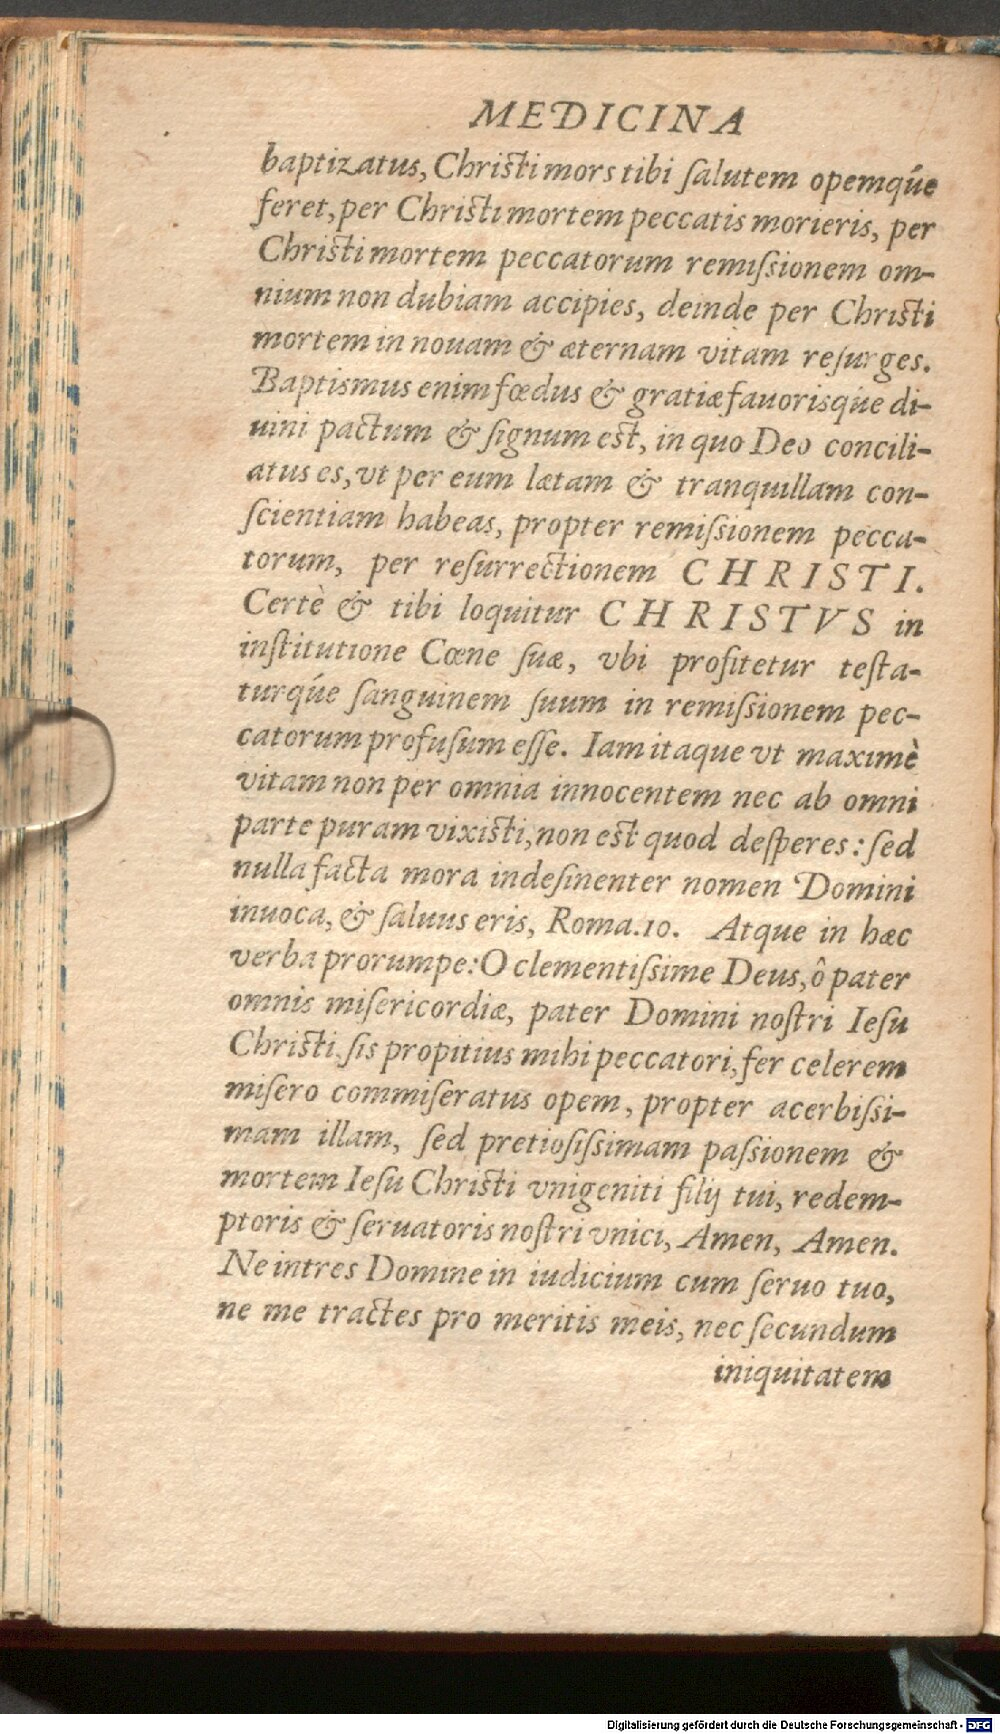 MEDICINA
baptizatus, Christi mors tibi ſalutem opemq́ue
feret, per Christi mortem peccatis morieris, per
Christi mortem peccatorum remiſsionem om-
nium non dubiam accipies, deinde per Christi
mortem in nouam & æternam vitam reſurges.
Baptismus enim fœdus & gratiæ fauorisq́ue di-
uini pactum & ſignum est, in quo Deo concili-
atus es, vt per eum lætam & tranquillam con-
ſcientiam habeas, propter remiſsionem pecca-
torum, per reſurrectionem CHRISTI.
Certè & tibi loquitur CHRISTVS in
inſtitutione Cœne ſuæ, vbi profitetur teſta-
turq́ue ſanguinem ſuum in remiſsionem pec-
catorum profuſum eſſe. Iam itaque vt maximè
vitam non per omnia innocentem nec ab omni
parte puram vixisti, non est quod deſperes: ſed
nulla facta mora indeſinenter nomen Domini
inuoca, & ſaluus eris, Roma.10. Atque in hæc
verba prorumpe: O clementiſsime Deus, ô pater
omnis miſericordiæ, pater Domini noſtri Ieſu
Christi, ſis propitius mihi peccatori, fer celerem
miſero commiſeratus opem, propter acerbiſsi-
mam illam, ſed pretioſiſsimam paſsionem &
mortem Ieſu Christi vnigeniti filij tui, redem-
ptoris & ſeruatoris noſtri vnici, Amen, Amen.
Ne intres Domine in iudicium cum ſeruo tuo,
ne me tractes pro meritis meis, nec ſecundum
iniquitatem
Digitalisierung gefördert durch die Deutsche Forschungsgemeinschaft - DFG